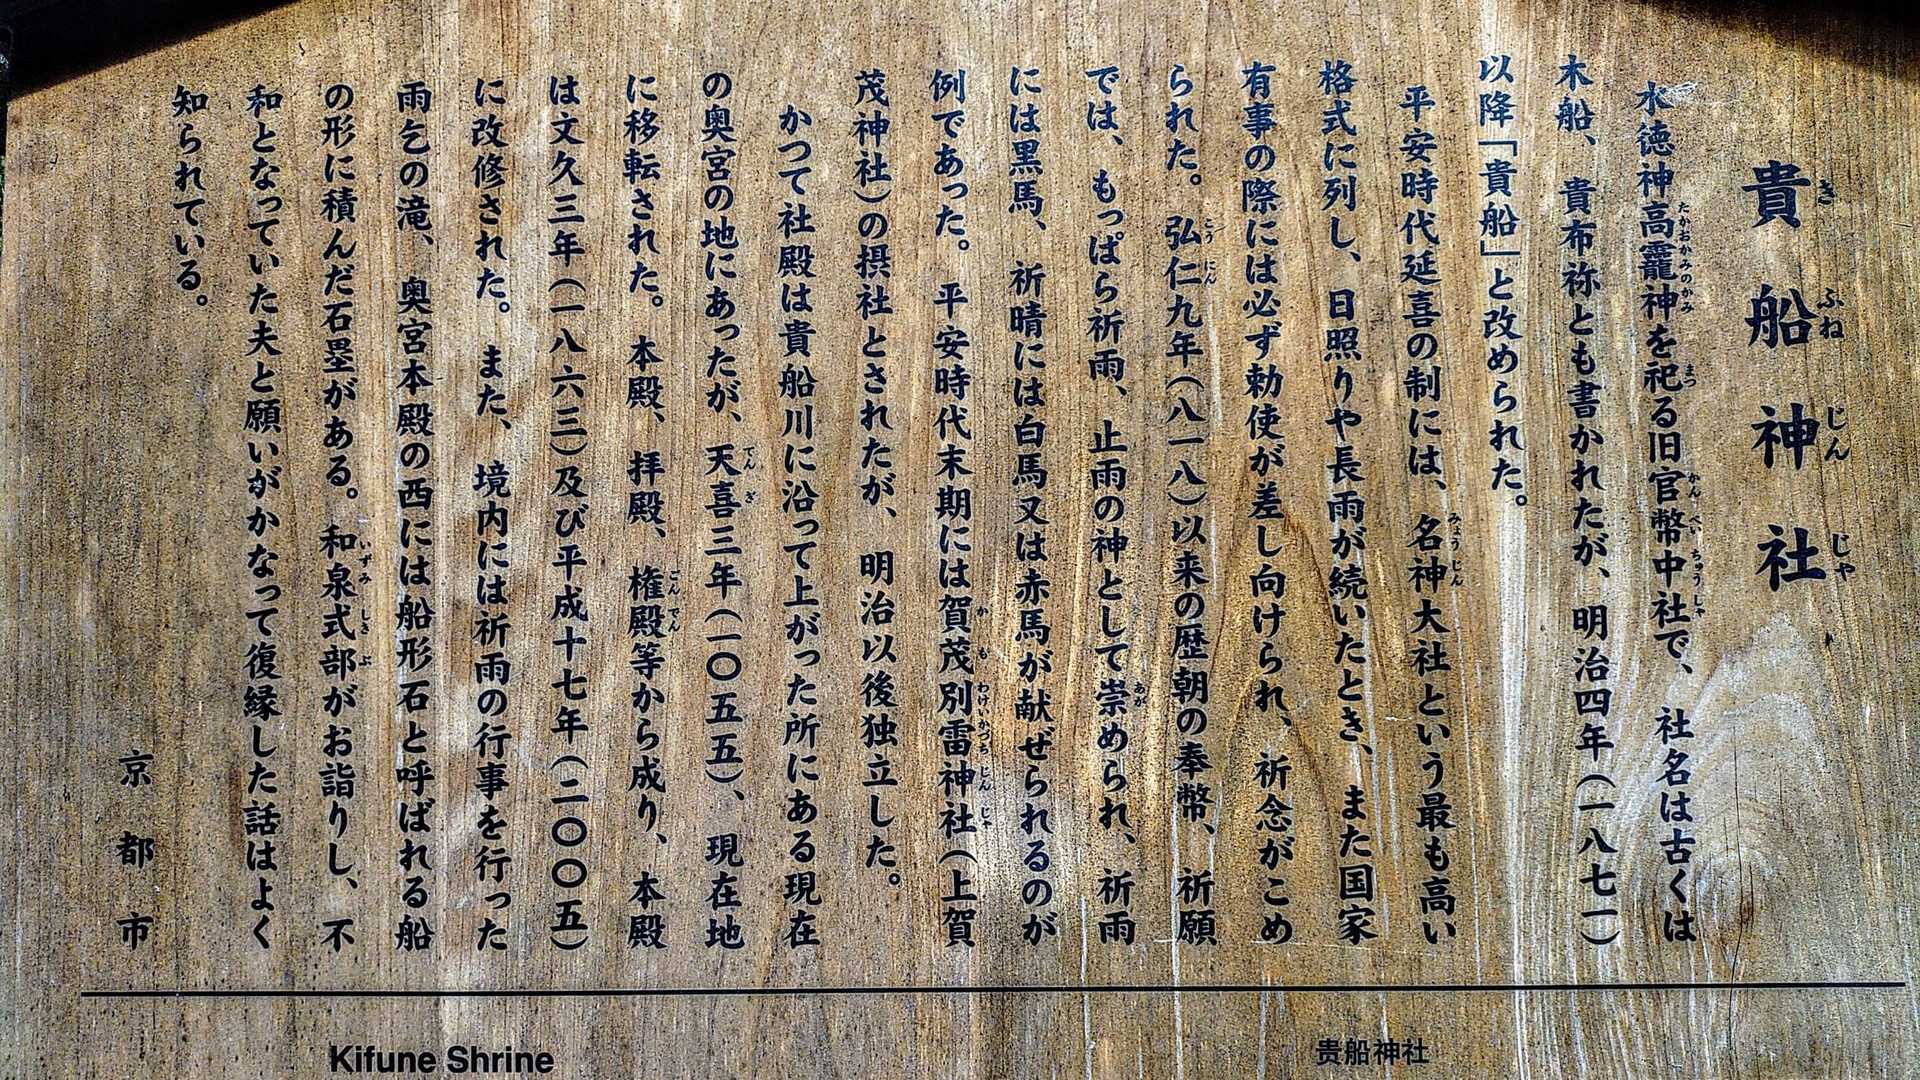 貴船神社
きふねじんじゃ
水徳神高龗神を祀る旧官幣中社で、社名は古くは
木船、貴布祢とも書かれたが、明治四年（一八七一）
以降「貴船」と改められた。
平安時代延喜の制には、名神大社という最も高い
格式に列し、日照りや長雨が続いたとき、また国家
有事の際には必ず勅使が差し向けられ、祈念がこめ
られた。弘仁九年（八一八）以来の歴朝の奉幣、祈願
では、もっぱら祈雨、止雨の神として崇められ、祈雨
には黒馬、祈晴には白馬又は赤馬が献ぜられるのが
例であった。平安時代末期には賀茂別雷神社（上賀
茂神社）の摂社とされたが、明治以後独立した。
かつて社殿は貴船川に沿って上がった所にある現在
の奥宮の地にあったが、天喜三年（一〇五五）、現在地
に移転された。本殿、拝殿、権殿等から成り、本殿
は文久三年（一八六三）及び平成十七年（二〇〇五）
に改修された。また、境内には祈雨の行事を行った
雨乞の滝、奥宮本殿の西には船形石と呼ばれる船
の形に積んだ石塁がある。和泉式部がお詣りし、不
和となっていた夫と願いがかなって復縁した話はよく
知られている。
京都市
Kifune Shrine
贵船神社